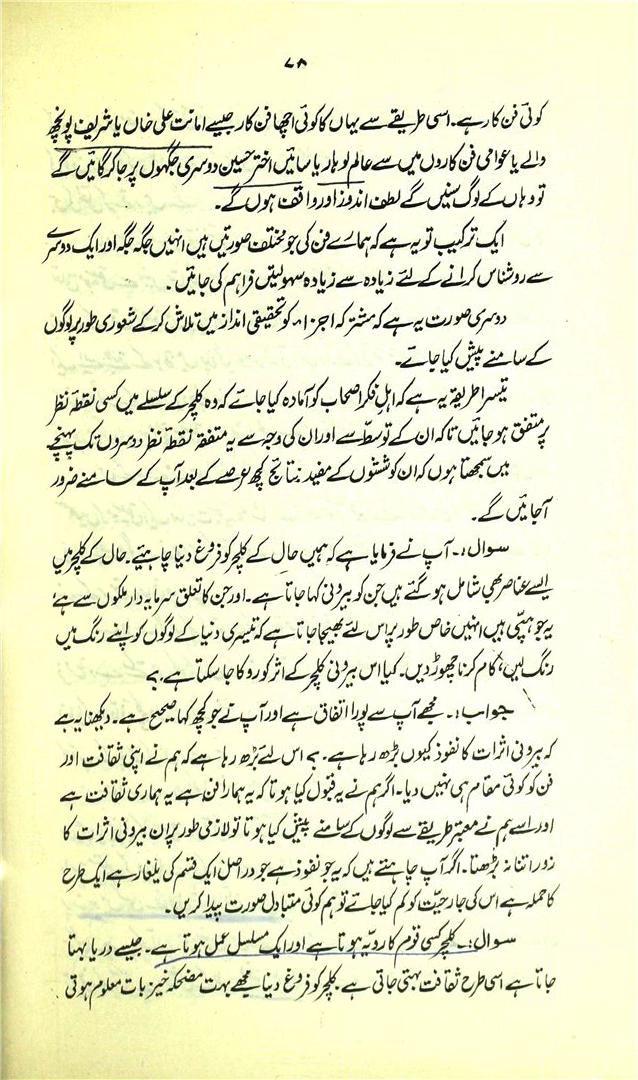 ۷۸
کوئی فن کار ہے۔ اسی طریقے سے یہاں کا کوئی اچھا فن کار جیسے امانت علی خاں یا شریف پونچھ
والے یا عوامی فن کاروں میں سے عالم لوہار یا سائیں اختر حسین دوسری جگہوں پر جا کر گائیں گے
تو وہاں کے لوگ سنیں گے لطف اندوز اور واقف ہوں گے۔
ایک ترکیب تو یہ ہے کہ ہمارے فن کی جو مختلف صورتیں ہیں انہیں جگہ جگہ اور ایک دوسرے
سے روشناس کرانے کے لئے زیادہ سے زیادہ سہولتیں فراہم کی جائیں۔
دوسری صورت یہ ہے کہ مشترکہ اجزاء کو تحقیقی انداز میں تلاش کر کے شعوری طور پر لوگوں
کے سامنے پیش کیا جائے۔
تیسرا طریقہ یہ ہے کہ اہل فکر اصحاب کو آمادہ کیا جائے کہ وہ کلچر کے سلسلے میں کسی نقطۂ نظر
پر متفق ہو جائیں تاکہ ان کے توسط سے اور ان کی وجہ سے یہ متفقہ نقطۂ نظر دوسروں تک پہنچے
میں سمجھتا ہوں کہ ان کوششوں کے مفید نتائج کچھ عرصے کے بعد آپ کے سامنے ضرور
آ جائیں گے۔
سوال:۔ آپ نے فرمایا ہے کہ ہمیں حال کے کلچر کو فروغ دینا چاہئیے۔ حال کے کلچر میں
ایسے عناصر بھی شامل ہو گئے ہیں جن کو بیرونی کہا جاتا ہے۔ اور جن کا تعلق سرمایہ دار ملکوں سے ہے
یہ جو ہپی ہیں انہیں خاص طور پر اس لئے بھیجا جاتا ہے کہ تیسری دنیا کے لوگوں کو اپنے رنگ میں
رنگ لیں، کام کرنا چھوڑ دیں۔ کیا اس بیرونی کلچر کے اثر کو روکا جا سکتا ہے۔؟
جواب:۔ مجھے آپ سے پورا اتفاق ہے اور آپ نے جو کچھ کہا صحیح ہے۔ دیکھنا یہ ہے
کہ بیرونی اثرات کا نفوذ کیوں بڑھ رہا ہے۔؟ اس لئے بڑھ رہا ہے کہ ہم نے اپنی ثقافت اور
فن کو کوئی مقام ہی نہیں دیا۔ اگر ہم نے یہ قبول کیا ہوتا کہ یہ ہمارا فن ہے یہ ہماری ثقافت ہے
اور اسے ہم نے معتبر طریقے سے لوگوں کے سامنے پیش کیا ہوتا تو لازمی طور پر ان بیرونی اثرات کا
زور اتنا نہ بڑھتا۔ اگر آپ چاہتے ہیں کہ یہ جو نفوذ ہے جو دراصل ایک قسم کی یلغار ہے ایک طرح
کا حملہ ہے اس کی جارحیت کو کم کیا جائے تو ہم کوئی متبادل صورت پیدا کریں۔
سوال:۔ کلچر کسی قوم کا رویہ ہوتا ہے اور ایک مسلسل عمل ہوتا ہے۔ جیسے دریا بہتا
جاتا ہے اسی طرح ثقافت بہتی جاتی ہے۔ کلچر کو فروغ دینا مجھے بہت مضحکہ خیز بات معلوم ہوتی